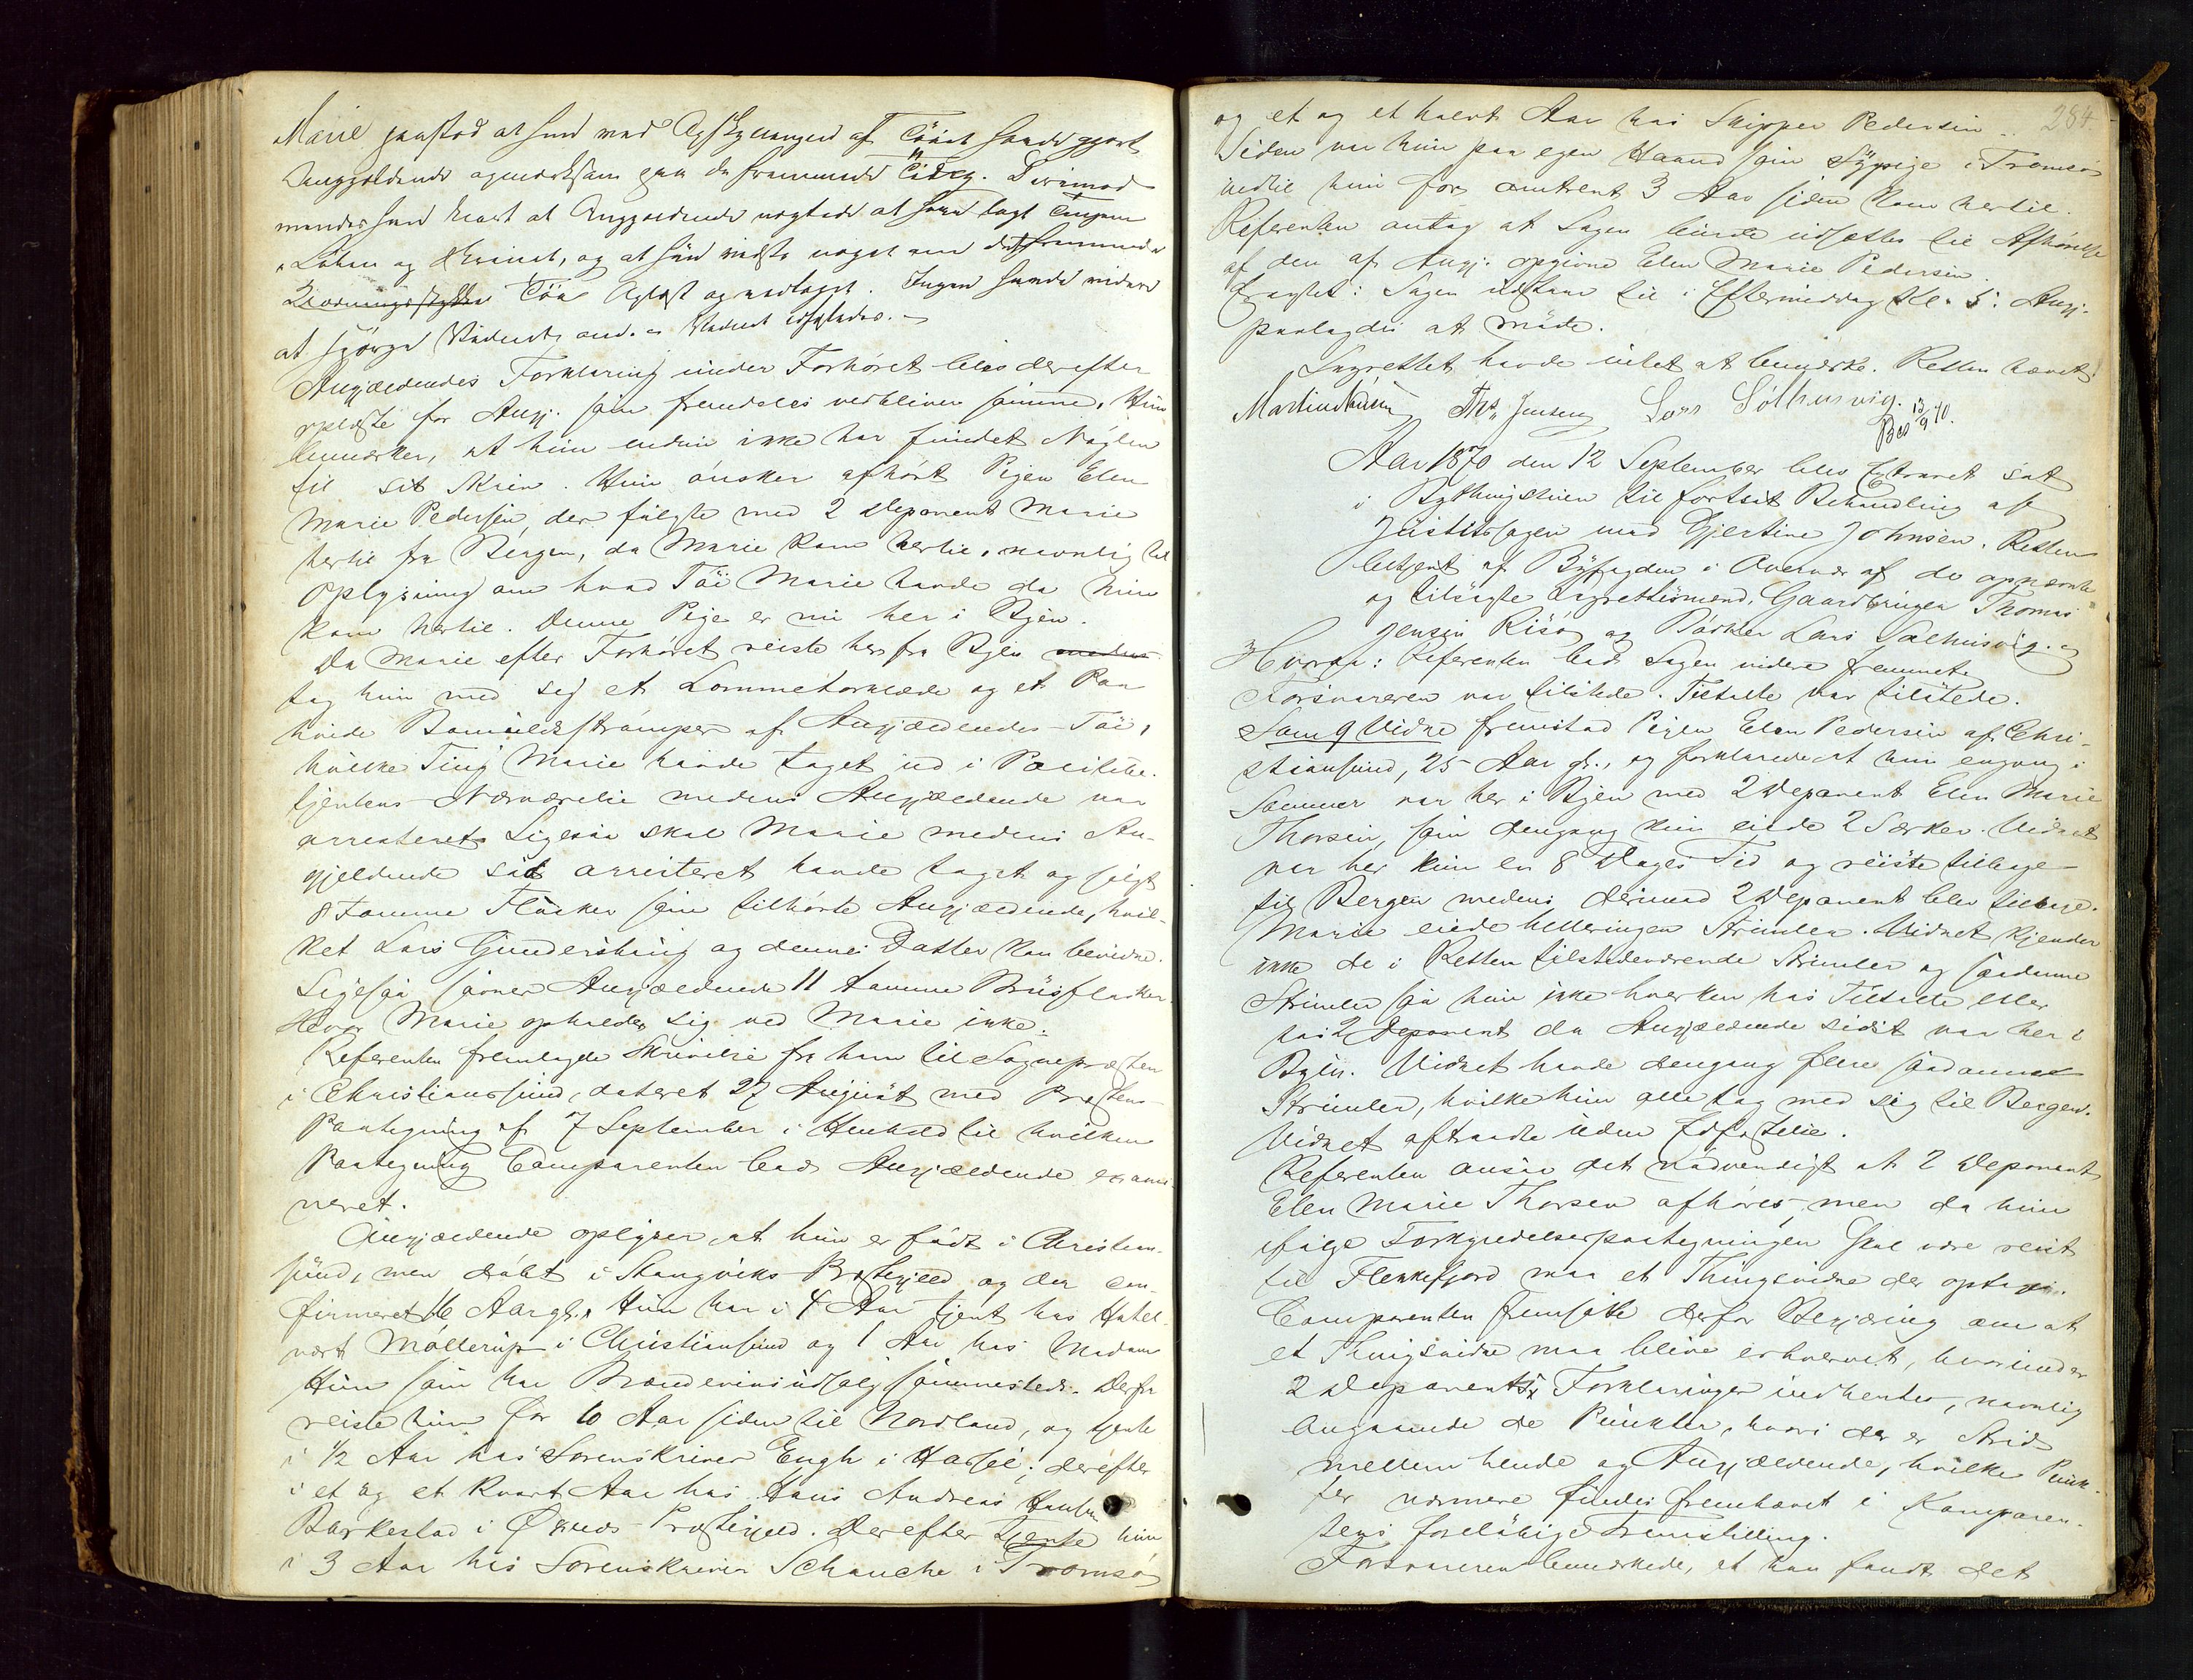 Marie paastod at hun ved Afskyllingen af Töiet havde gjort
Anggjeldende opmerksom paa de fremmede Töi. Derimod
at Anggjeldende negtede at have lagt
Lehen og Skrinet, og at hun vidste noget om det fremmede
Töi og modtaget. Ingen havde videre
at spörge Vidnet om. Vidnet
Angjældendes Forklaring under Forhöret blev derefter
oplæste for Angj. som fremdeles vedbliver samme. Hun
bemærker, at hun endnu ikke har fundet Nöglen
til sit Skrin. Hun önsker afhört Pigen Elen
Marie Pedersen der fulgte med 2 Deponent Marie
hertil fra Bergen, da Marie kom hertil, navnlig til
Oplysning om hvad Töi Marie havde da hun
kom hertil. Denne Pige er nu her i Byen.
Da Marie efter Forhöret reiste her fra Byen
tog hun med sig et Lommetorklæde og et Par
hvide Bomuldsströmper af Angjældendes Töi,
hvilke Ting Marie havde taget ud i Politibe-
tjentens Nærværelse medens Angjældende var
arresteret. Ligesaa skal Marie medens An-
gjeldende sad arresteret havde taget og solgt
8 Tomme Flasker som tilhörte Angjældende, hvil-
ket Lars Gundershaug og dennes Datter kan bevidne.
Ligesaa savner Angjældende 11 tomme Brusflasker.
Hvor Marie opholder sig ved Marie ikke.
Referenten fremlagde Skrivelse fra ham til Sognepresten
i Christianssund, dateret 27 August med Prestens
Paategning af 7 September i Henhold til hvilken
Paategning Comparenten bad Angjældende exami-
neret.
Angjældende oplyser, at hun er födt i Christian-
sund, men döbt i Stangviks Prestegjeld og der con-
firmeret 16 Aar gl. Hun har i 4 Aar tjent hos Hotel-
vært Möllerup i Christiansund og 1 Aar hos Madam
Hun som har Brændeviinsudsalg sammesteds. Derfra
reiste hun for 10 Aar siden til Nordland, og tjente
i 1/2 Aar hos Sorenskriver Engh i Hassel; derefter
i et og et kvart Aar hos Hans Andreas Hansen
Barkestad i Öxnes Prestegjeld. Derefter tjente hun
i 3 Aar hos Sorenskriver Schanche i Tromsö
284
og et og et halvt Aar hos Skipper Pedersen.
Siden var hun paa egen Haand som Sypige i Tromsö
indtil hun for omtrent 3 Aar siden kom hertil.
Referenten antog at Sagen burde udsættes til Afhörelse
af den af Angj. opgivne Elen Marie Pedersen.
Eragtet: Sagen udstaar til i Eftermiddag Kl. 5. Angj.
paalagdes at möde.
Lagrettet havde intet at bemærke. Retten hævet.
Ths. Jensen Lars Sölhusvig.
Bes 13/9 70.
Aar 1870 den 12 September blev Extraret sat
i Bythingstuen til fortsat Behandling af
Justitssagen mod Gjertine Johnsen. Retten
betjent af Byfogden i Overvær af de opnævnte
og tilsagte Lagrettesmænd, Gaardbruger Thomas
Jensen Risö og Bödker Lars Salhusvig.
Hvorda: Referenten bad Sagen videre fremmet.
Forsvareren var tilstede. Tiltalte var tilstede.
Som 9 Vidne fremstod Pigen Elen Pedersen af Chri-
stiansund, 25 Aar gl., og forklarede at hun engang i
Sommer var her i Byen med 2 Deponent Elen Marie
Thorsen, som dengang kun eiede 2 Særker. Vidnet
var her kun en 8 Dages Tid og reiste tilbage
til Bergen medens derimod 2 Deponent blev tilbage.
Marie eiede helleringen Strimler. Vidnet kjender
ikke de i Retten tilstedeværende Strimler og saadanne
Strimler saa hun ikke hverken hos Tiltalte eller
hos 2 Deponent da Angjældende sidst var her i
Byen. Vidnet havde dengang flere saadanne
Strimler, hvilke hun alle tog med sig til Bergen.
Vidnet aftraadte uden Edfæstelse.
Referenten ansaa det nödvendigt at 2 Deponent
Elen Marie Thorsen afhöres men da hun
ifölge Forkyndelsespaategningen skal være reist
til Flekkefjord maa et Thingsvidne der optages.
Comparenten fremsatte derfor Begjæring om at
et Thingsvidne maa blive erhvervet, hvorunder
2 Deponents Forklaringer indhentes, navnlig
angaaende de Punkter, hvori der er Strid
mellem hende og Angjældende, hvilke Punk-
ter nærmere findes fremhævet i Komparen-
tens foreløbige Fremstilling.
Forsvareren bemærkede, at han fandt det